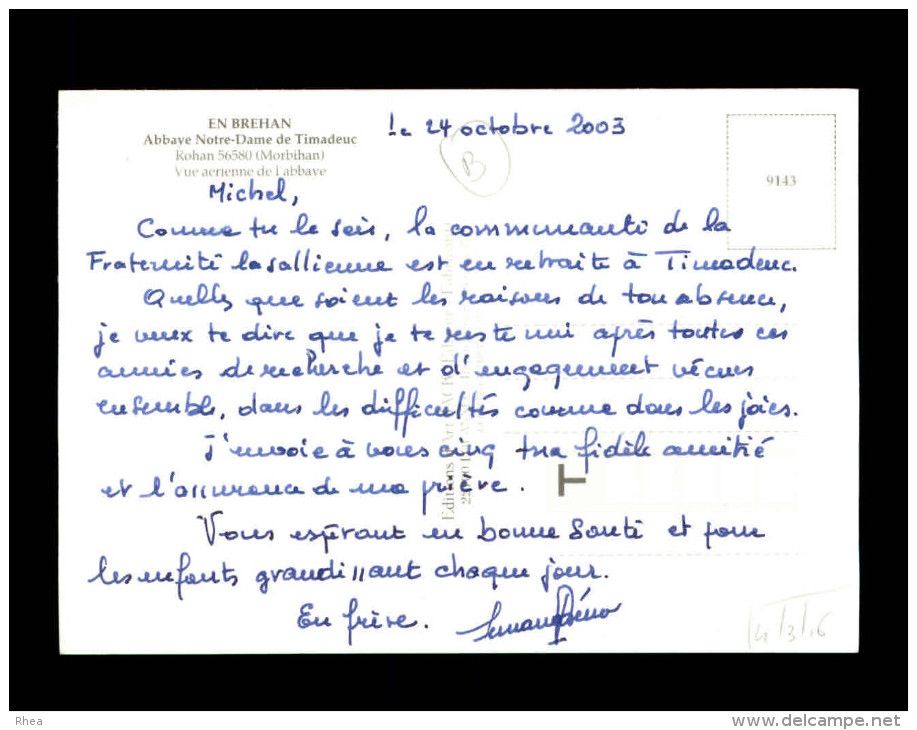 EN BREHAN
Abbaye Notre-Dame de Timadeuc
Rohan 56580 (Morbihan)
Vue aerienne de l'abbaye
le 24 octobre 2003
B
9143
Michel,
Comme tu le sais, la communauté de la
Fraternité lasallienne est en retraite à Timadeuc.
Quelles que soient les raisons de ton absence,
je veux te dire que je te reste uni après toutes ces
années de recherche et d'engagement vécues
ensemble, dans les difficultés comme dans les joies.
J'envoie à vous cinq ma fidèle amitié
et l'assurance de ma prière.
Vous espérant en bonne santé et pour
les enfants grandissant chaque jour.
En frère.
Editions d'Art
Rhea
www.delcampe.net